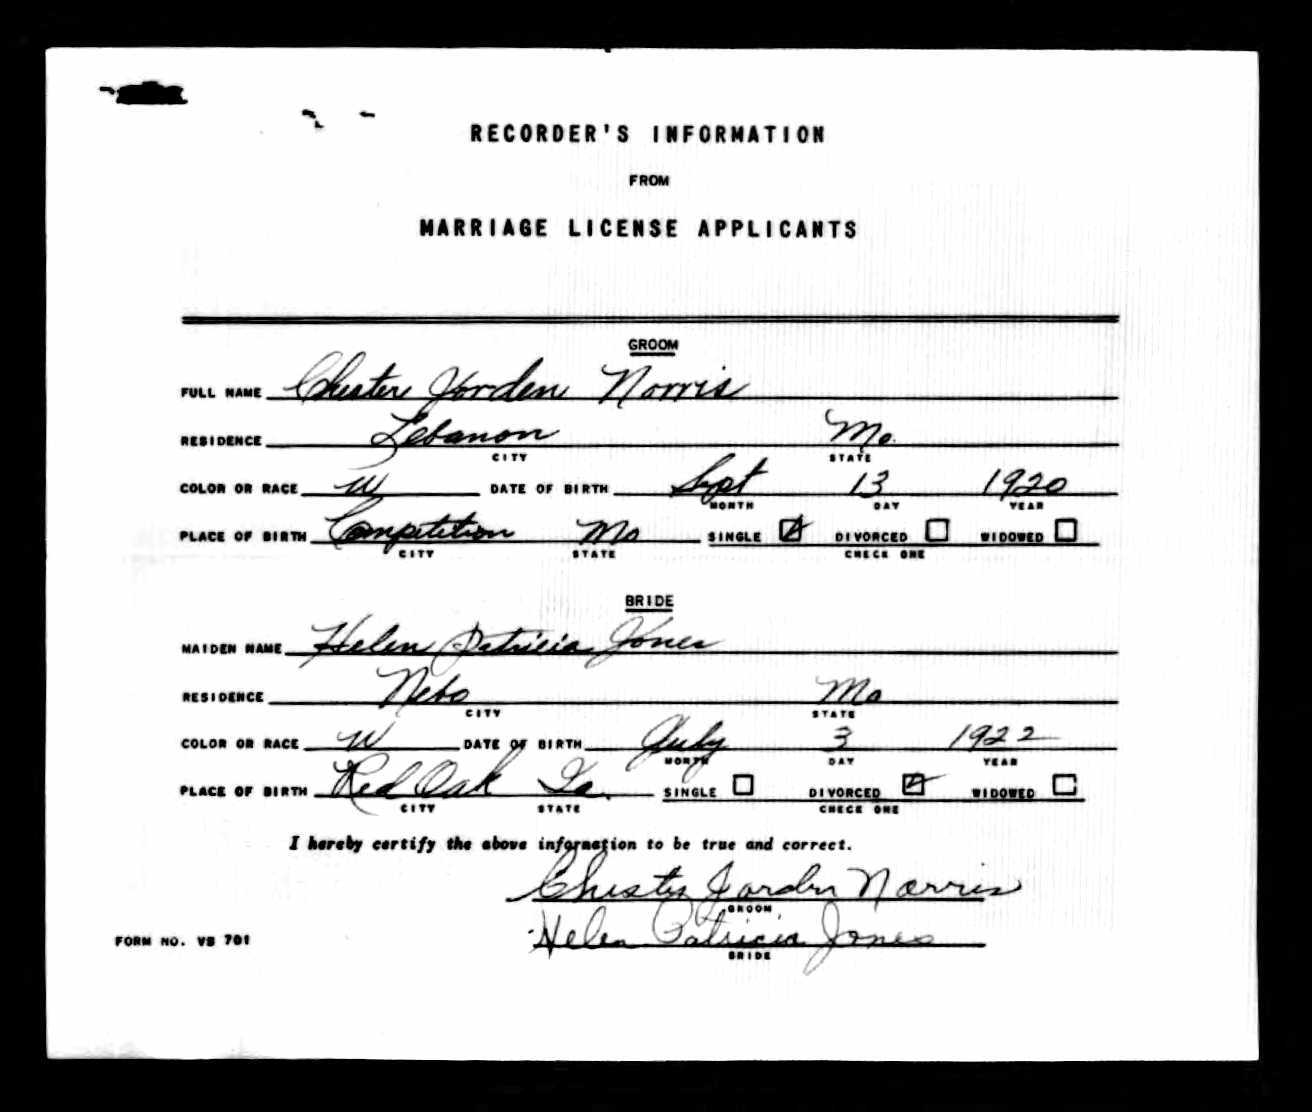 RECORDER'S INFORMATION
FROM
MARRIAGE LICENSE APPLICANTS
GROOM
FULL NAME Chester Jorden Norris
RESIDENCE Lebanon Mo.
CITY STATE
COLOR OR RACE W DATE OF BIRTH Sept 13 1920
MONTH DAY YEAR
PLACE OF BIRTH Competition Mo SINGLE DIVORCED WIDOWED
CITY STATE CHECK ONE
BRIDE
MAIDEN NAME Helen Patricia Jones
RESIDENCE Nebo Mo
CITY STATE
COLOR OR RACE W DATE OF BIRTH July 3 1922
MONTH DAY YEAR
PLACE OF BIRTH Red Oak Ia. SINGLE DIVORCED WIDOWED
CITY STATE CHECK ONE
I hereby certify the above information to be true and correct.
Chester Jorden Norris
GROOM
Helen Patricia Jones
FORM NO. VS 701
BRIDE